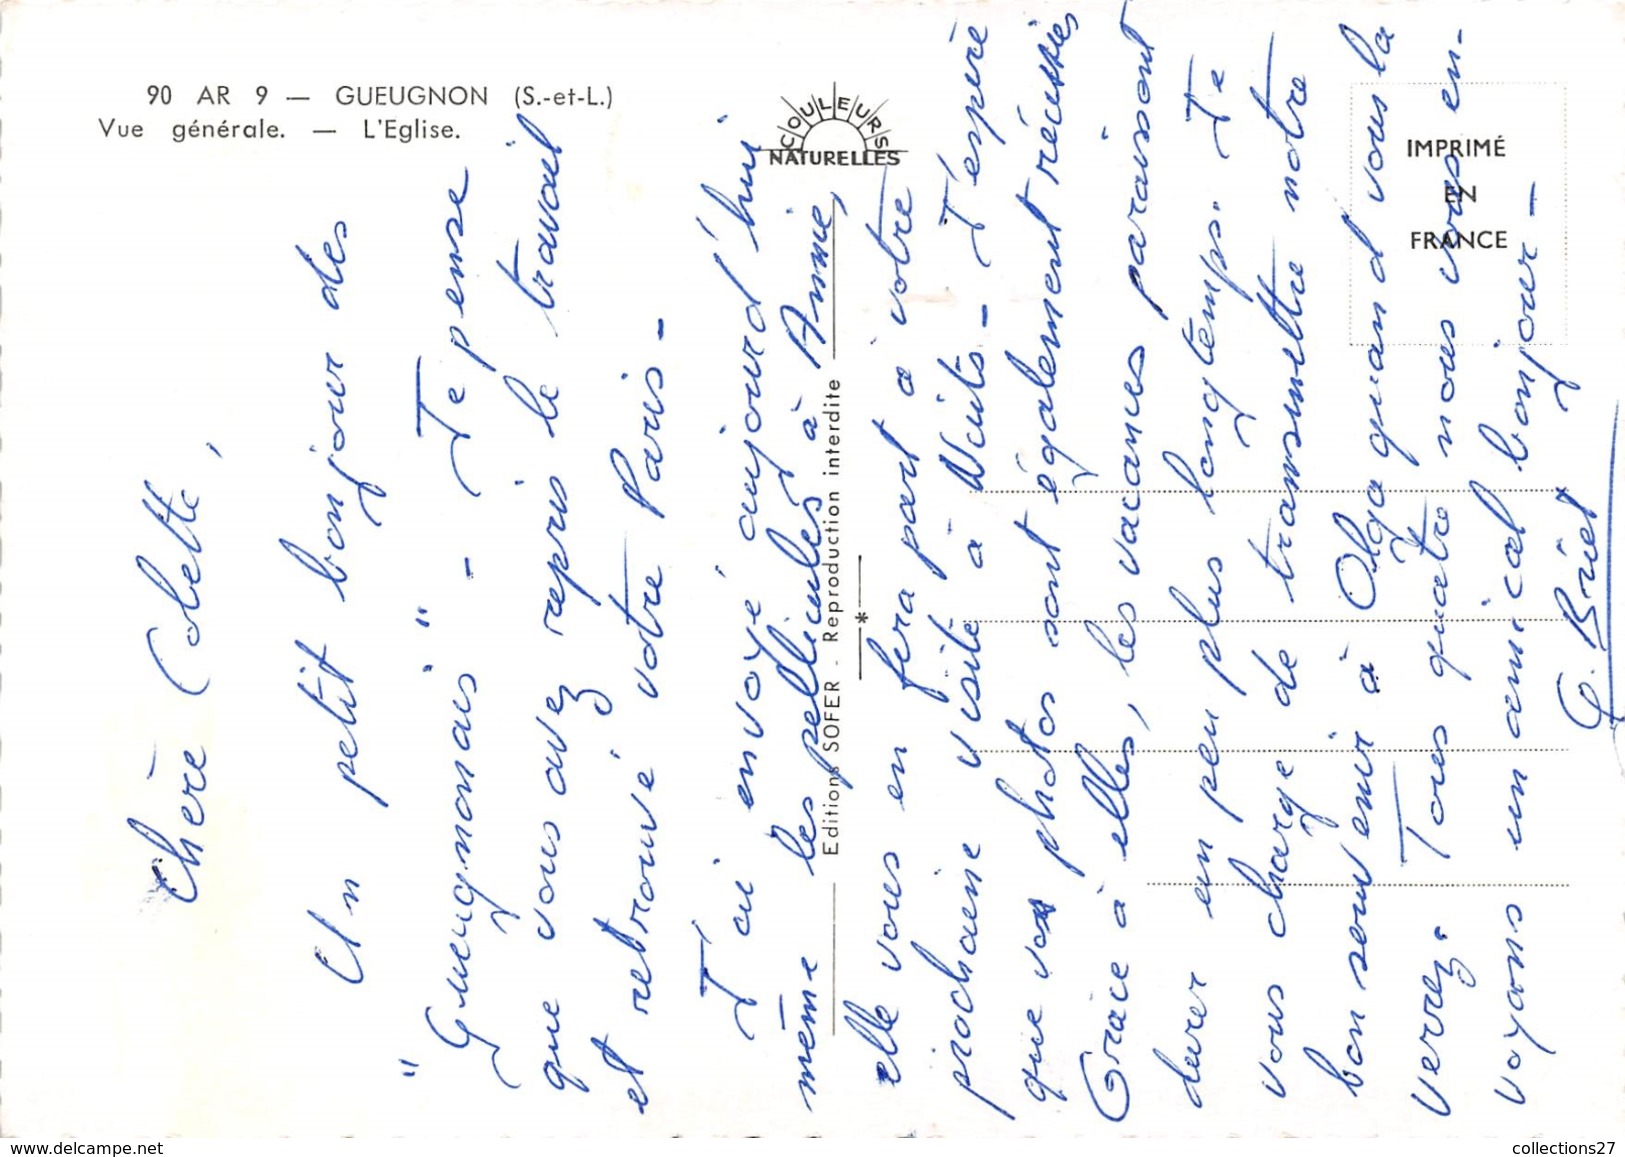 90 AR 9 — GUEUGNON (S.-et-L.)
Vue générale. — L'Eglise.
COULEURS
NATURELLES
IMPRIMÉ
EN
FRANCE
Editions SOFER - Reproduction interdite
Chère Colette,
Un petit bonjour des
"Gueugnonnais" - Je pense
que vous avez repris le travail
et retrouvé votre Paris -
J'ai envoyé aujourd'hui
même les pellicules à Annie,
elle vous en fera part à votre
prochaine visite à Nuits - J'espère
que vos photos sont également réussies
Grâce à elles, les vacances paraissont
durer un peu plus longtemps. Je
vous charge de transmettre notre
bon souvenir à Olga quand vous la
verrez. Tous quatre nous vous en-
voyons un amical bonjour -
G. Briet
www.delcampe.net
collections27